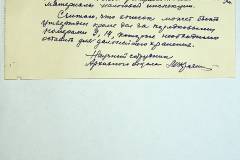 материалы налоговой инспекции.
Считаю, что описи может быть
утвержден кроме дд за порядковыми
номерами 9, 14, которые необходимо
оставить для дальнейшего хранения.
Научный сотрудник
Архивного отдела